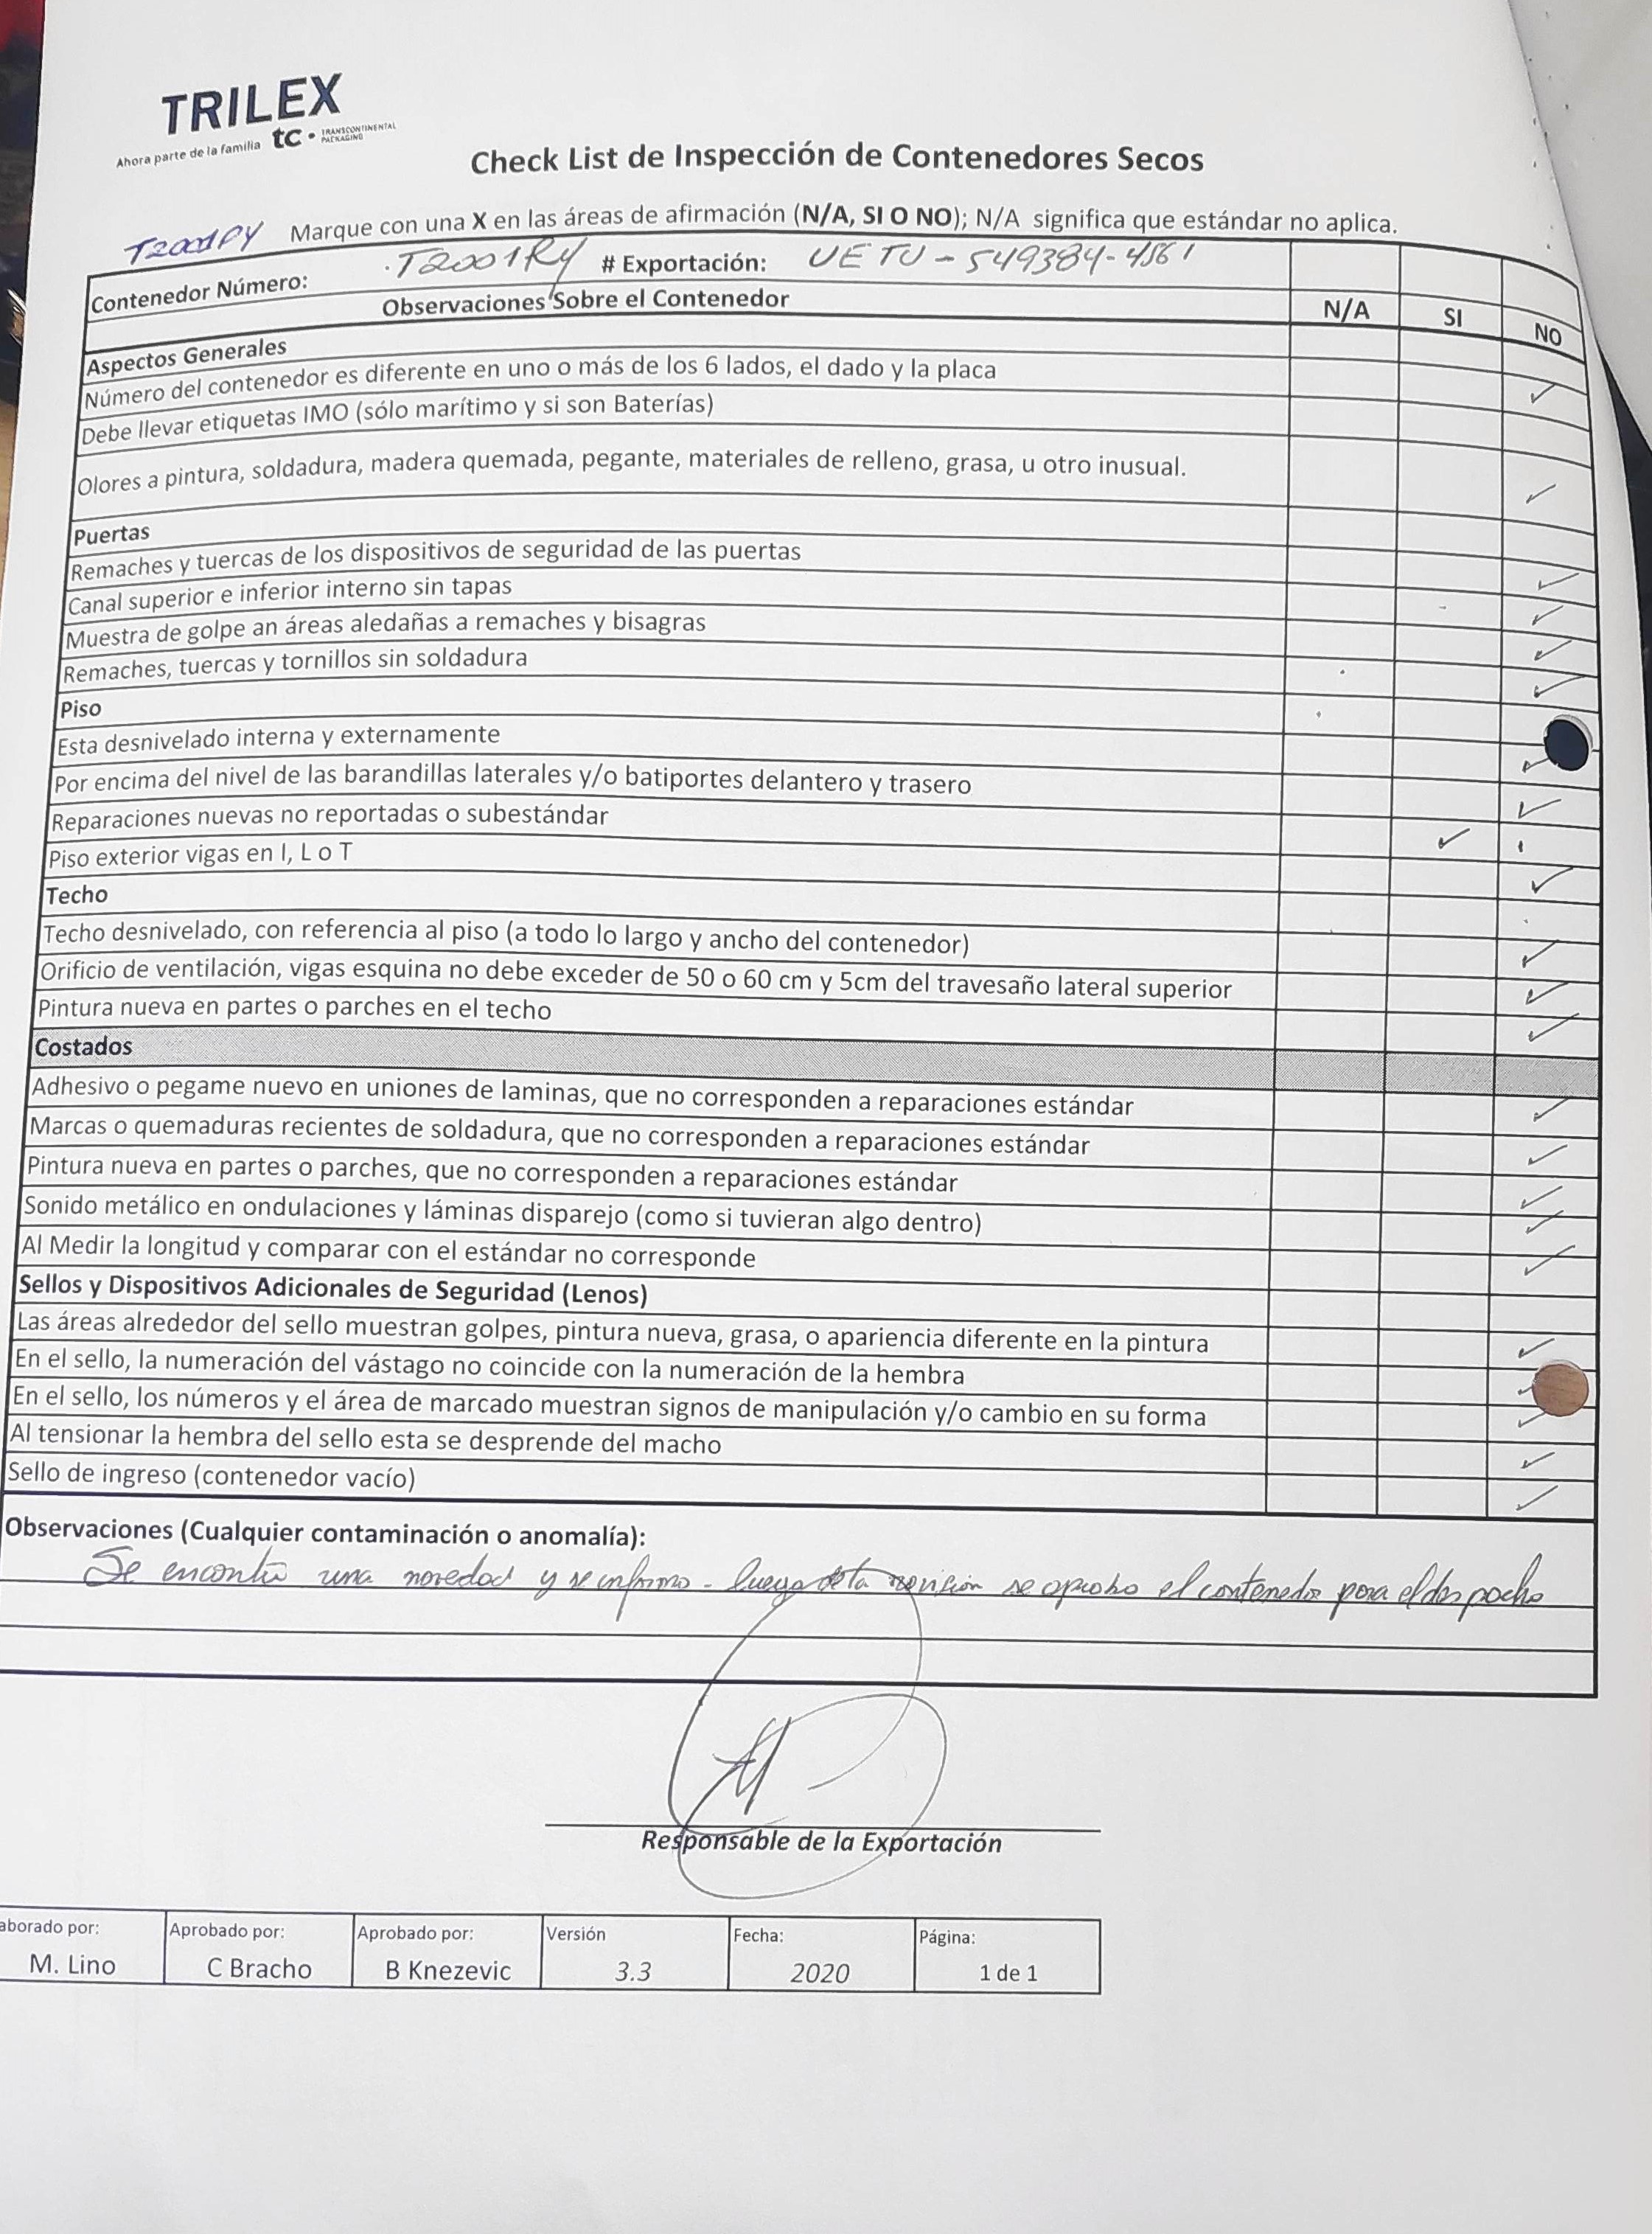 TRILEX
Ahora parte de la familia tc • TRANSCONTINENTAL PACKAGING
Check List de Inspección de Contenedores Secos
Marque con una X en las áreas de afirmación (N/A, SI O NO); N/A significa que estándar no aplica.
Contenedor Número: T2001RY # Exportación: UETU-549384-4561
Observaciones Sobre el Contenedor N/A SI NO
Aspectos Generales
Número del contenedor es diferente en uno o más de los 6 lados, el dado y la placa ✓
Debe llevar etiquetas IMO (sólo marítimo y si son Baterías)
Olores a pintura, soldadura, madera quemada, pegante, materiales de relleno, grasa, u otro inusual. ✓
Puertas
Remaches y tuercas de los dispositivos de seguridad de las puertas ✓
Canal superior e inferior interno sin tapas ✓
Muestra de golpe an áreas aledañas a remaches y bisagras ✓
Remaches, tuercas y tornillos sin soldadura ✓
Piso
Esta desnivelado interna y externamente ✓
Por encima del nivel de las barandillas laterales y/o batiportes delantero y trasero ✓
Reparaciones nuevas no reportadas o subestándar ✓
Piso exterior vigas en I, L o T ✓
Techo
Techo desnivelado, con referencia al piso (a todo lo largo y ancho del contenedor) ✓
Orificio de ventilación, vigas esquina no debe exceder de 50 o 60 cm y 5cm del travesaño lateral superior ✓
Pintura nueva en partes o parches en el techo ✓
Costados
Adhesivo o pegame nuevo en uniones de laminas, que no corresponden a reparaciones estándar ✓
Marcas o quemaduras recientes de soldadura, que no corresponden a reparaciones estándar ✓
Pintura nueva en partes o parches, que no corresponden a reparaciones estándar ✓
Sonido metálico en ondulaciones y láminas disparejo (como si tuvieran algo dentro) ✓
Al Medir la longitud y comparar con el estándar no corresponde ✓
Sellos y Dispositivos Adicionales de Seguridad (Lenos)
Las áreas alrededor del sello muestran golpes, pintura nueva, grasa, o apariencia diferente en la pintura ✓
En el sello, la numeración del vástago no coincide con la numeración de la hembra ✓
En el sello, los números y el área de marcado muestran signos de manipulación y/o cambio en su forma ✓
Al tensionar la hembra del sello esta se desprende del macho ✓
Sello de ingreso (contenedor vacío) ✓
Observaciones (Cualquier contaminación o anomalía):
Se encontro una novedad y se informo - luego de la revisión se aprobo el contenedor para el despacho
Responsable de la Exportación
aborado por: Aprobado por: Aprobado por: Versión Fecha: Página:
M. Lino C Bracho B Knezevic 3.3 2020 1 de 1